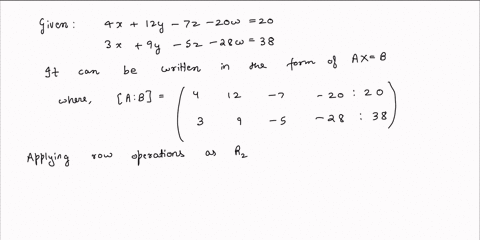 Given: 4x + 12y - 7z - 20w = 20
3x + 9y - 5z - 28w = 38
It can be written in the form of AX = B
where, [A:B] = ( 4 12 -7 -20 : 20
3 9 -5 -28 : 38 )
Applying row operations as R₂